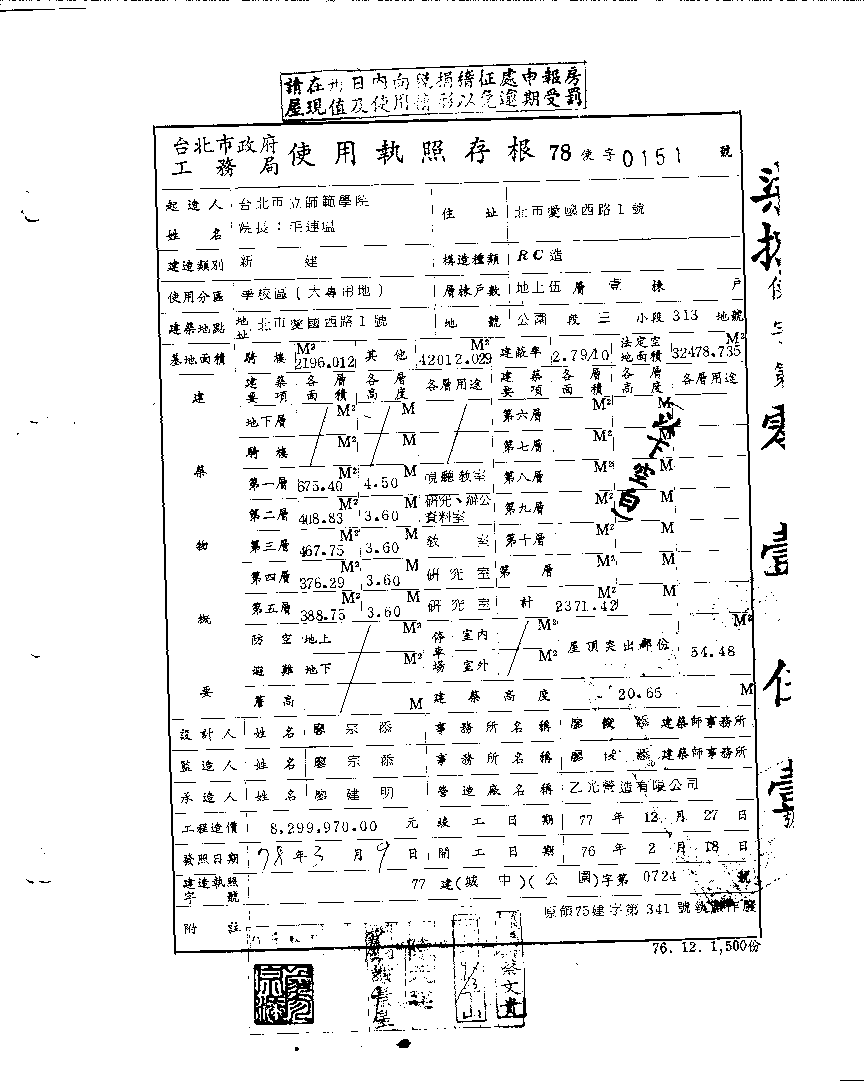 請在卅日內向稅捐稽征處申報房
屋現值及使用情形以免逾期受罰
台北市政府
工務局 使用執照存根 78 使字 0151 號
起造人 台北市立師範學院
姓名 院長:毛連塭
住址 北市愛國西路1號
建造類別 新建 構造種類 RC造
使用分區 學校區(大專用地) 層棟戶數 地上伍層壹棟 戶
建築地點 地址 北市愛國西路1號 地號 公園段三小段313地號
基地面積 騎樓 M² 2196.012 其他 42012.029 建蔽率 2.79/10 法定空地面積 M² 32478.735
建築物概要
建築要項 各層面積 各層高度 各層用途 建築要項 各層面積 各層高度 各層用途
地下層 M² M 第六層 M² M
騎樓 M² M 第七層 M² M
第一層 675.40 M² 4.50 M 視聽教室 第八層 M² M
第二層 408.83 M² 3.60 M 研究、辦公資料室 第九層 M² M
第三層 467.75 M² 3.60 M 教室 第十層 M² M
第四層 376.29 M² 3.60 M 研究室 第 層 M² M
第五層 388.75 M² 3.60 M 研究室 計 2371.42 M² M
(以下空白)
防空避難 地上 M² 地下 M² 停車場 室內 M² 室外 M² 屋頂突出部份 54.48 M²
簷高 M 建築高度 20.65 M
設計人 姓名 廖宗添 事務所名稱 建築師事務所
監造人 姓名 廖宗添 事務所名稱 建築師事務所
承造人 姓名 廖建明 營造廠名稱 乙光營造有限公司
工程造價 8,299,970.00 元 竣工日期 77年12月27日
發照日期 78年3月9日 開工日期 76年2月18日
建造執照字號 77 建(城中)(公園)字第 0724 號
附註 原領75建字第341號執照作廢
76.12.1,500份
蔡文貴